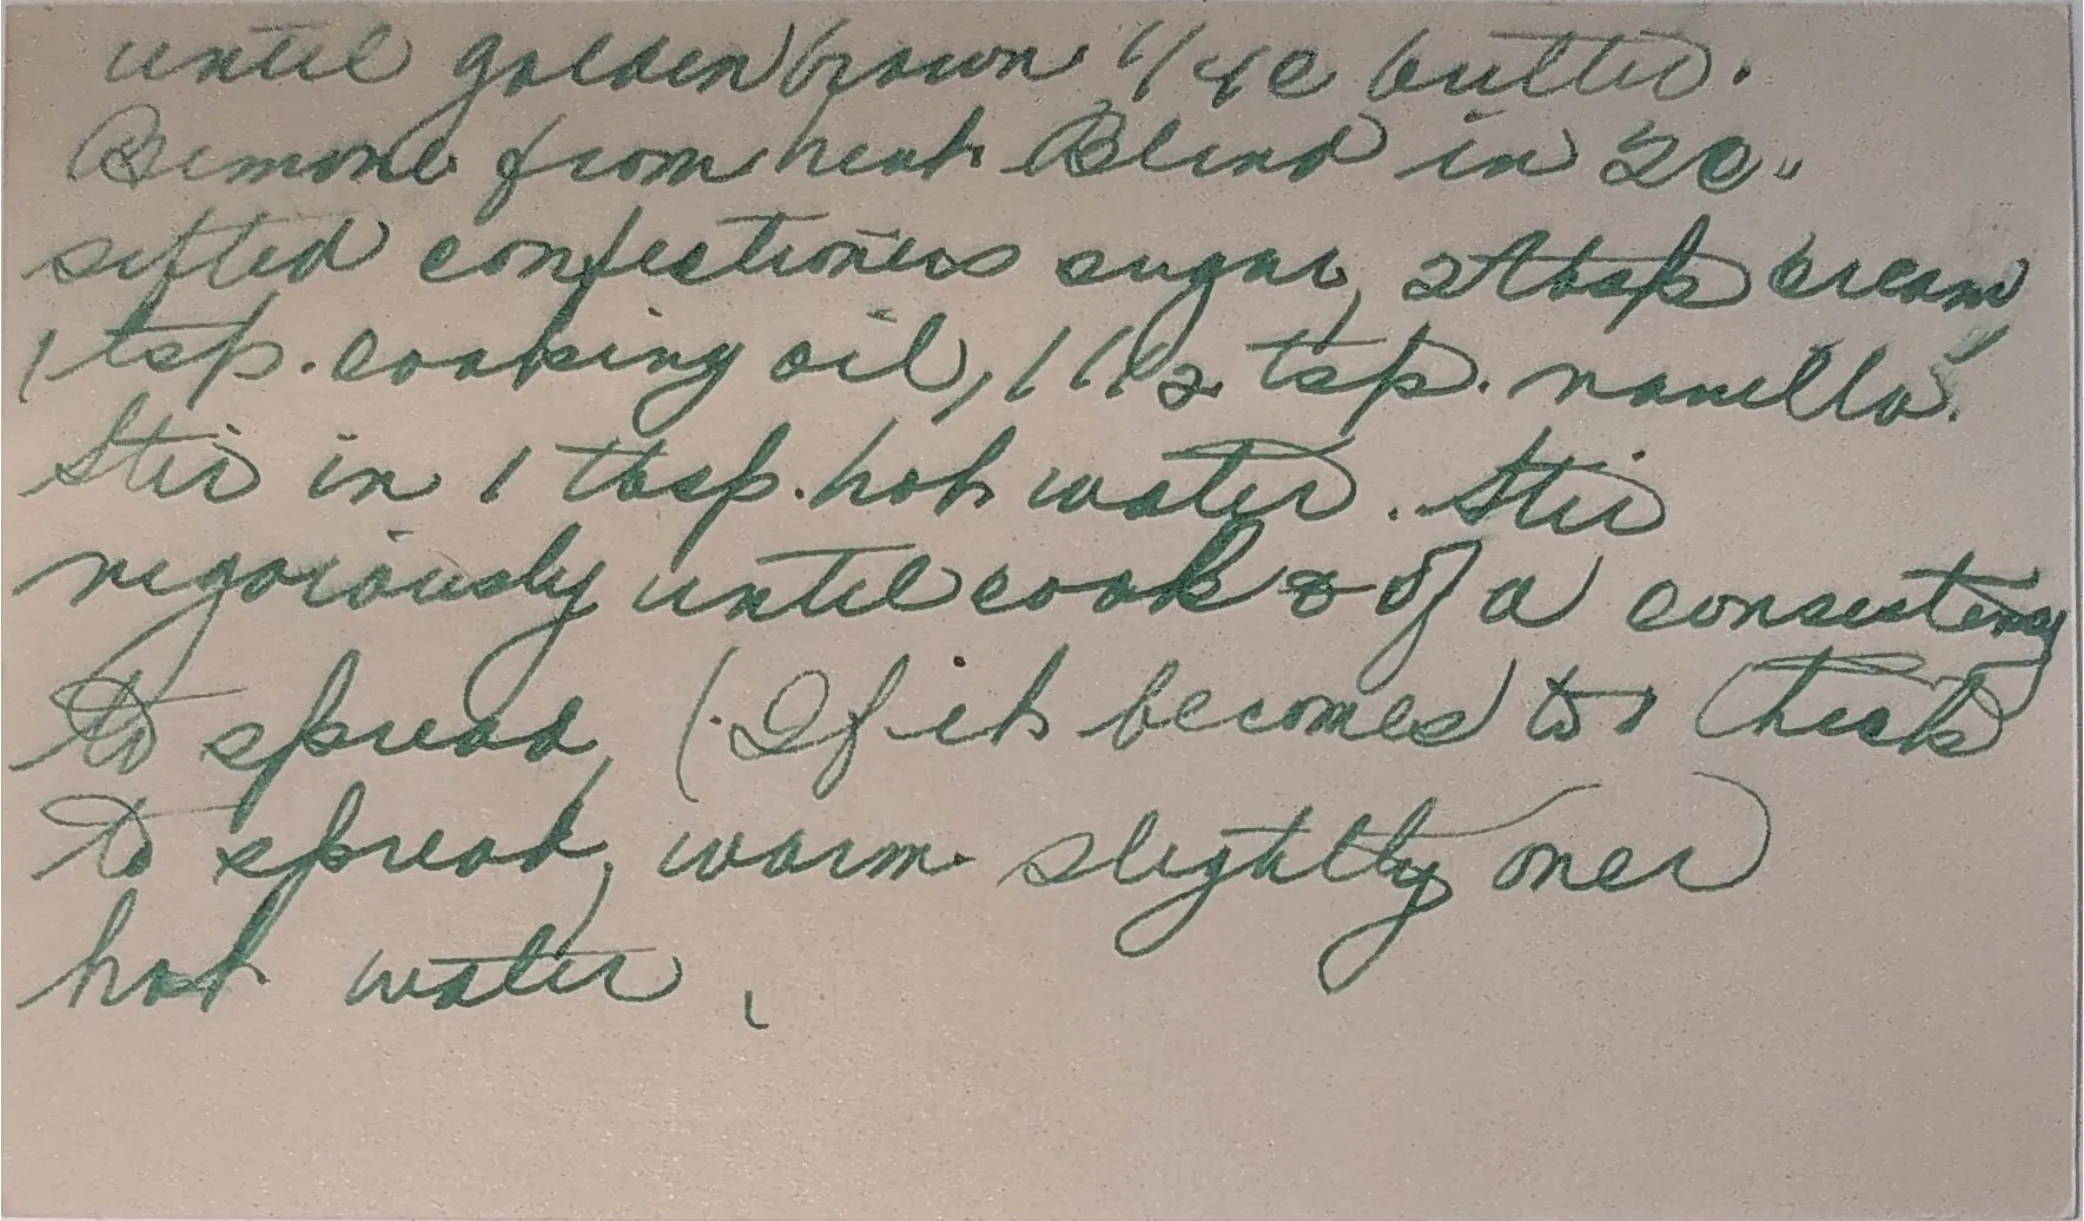 until golden brown 1/4 c butter.
Remove from heat. Blend in 2 c.
sifted confectioners sugar, 2 tbsp cream,
1 tsp. cooking oil, 1 1/2 tsp. vanilla.
Stir in 1 tbsp. hot water. Stir
vigoriously until cook & of a consistency
to spread, (If it becomes to thick
to spread, warm slightly over
hot water.